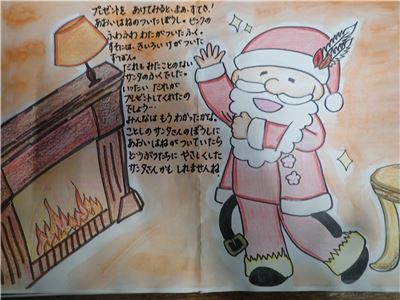 プレゼントを あけてみると、まぁ、すてき!
あおいはねのついたぼうし。ピンクの
ふわふわ わたがついた ふく。
すそには、きいろい けがついた
ずぼん。
だれも みたことのない
サンタのふくでした。
いったい だれが
プレゼントしてくれたの
でしょう…
みんなは もう わかったかな。
ことしの サンタさんの ぼうしに
あおいはねがついていたら
どうぶつたちに やさしくした
サンタさんかも しれませんね